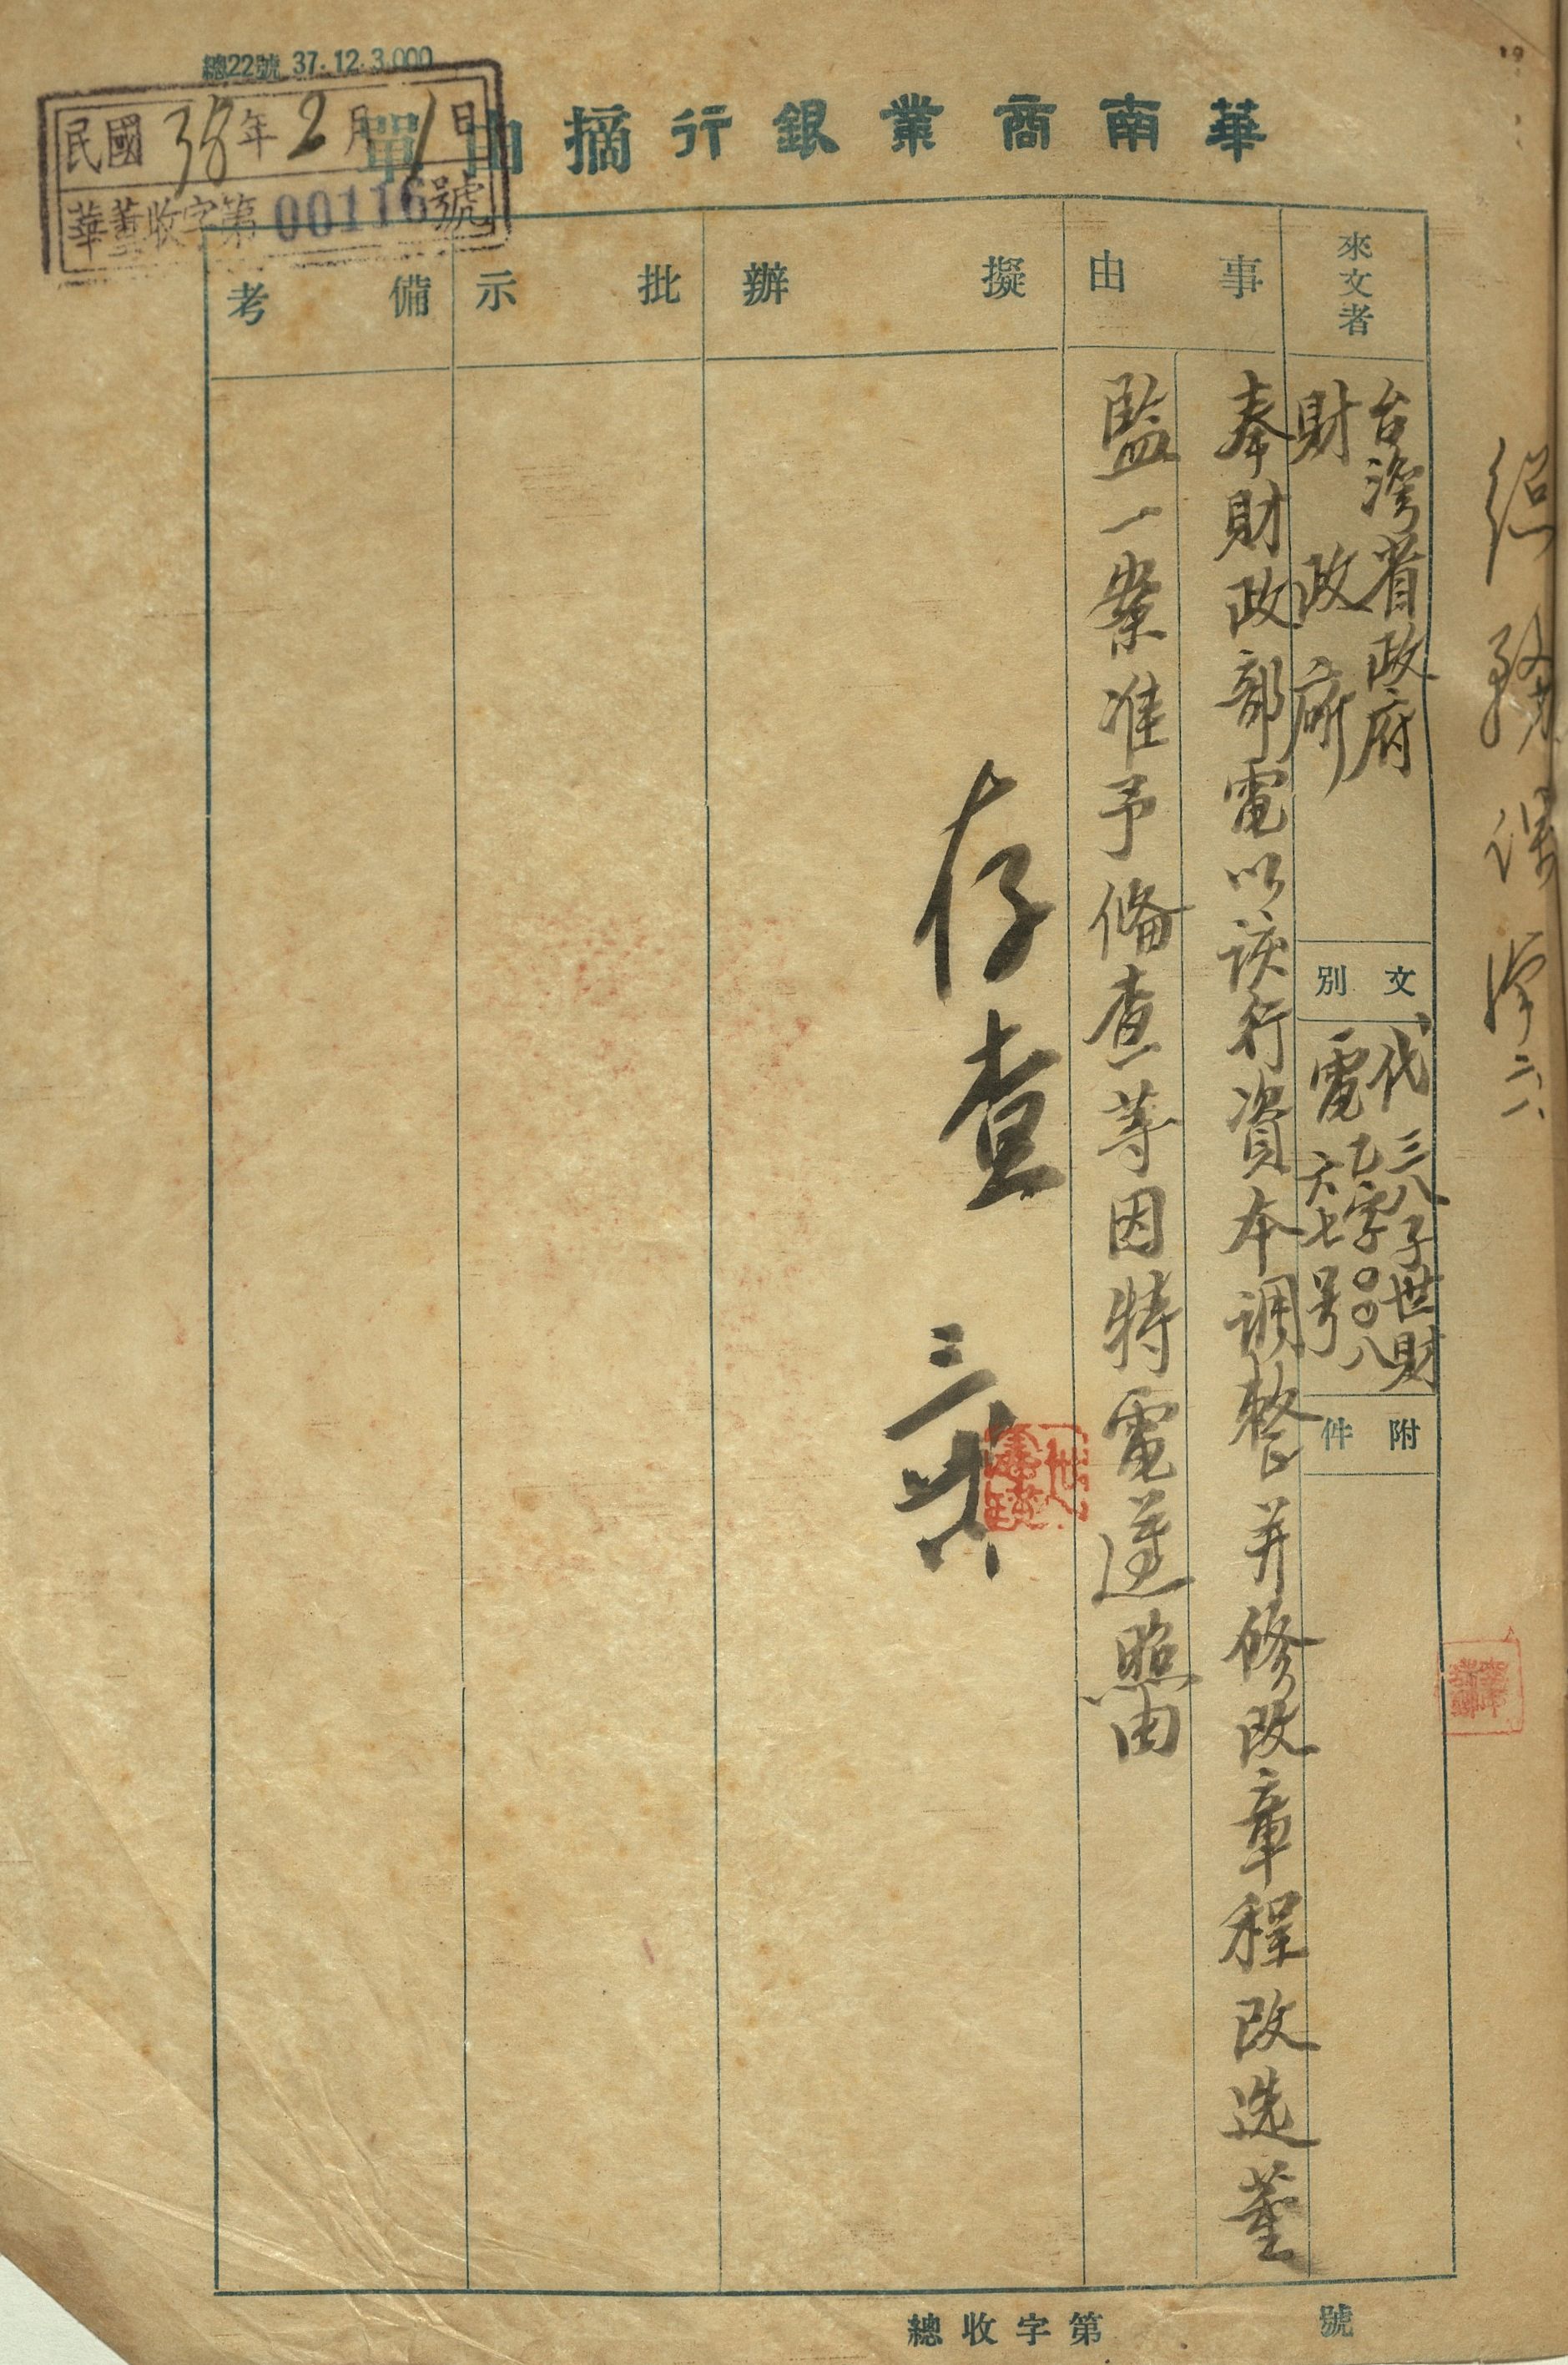 總22號 37.12.3,000
華南商業銀行摘由單
民國38年2月1日
華董收字第00116號
來文者
台灣省政府
財政廳
文別
代電
三八子世財
乙字〇〇八
六七号
附件
事由
奉財政部電以該行資本調整并修改章程改选董
監一案准予備查等因特電遵照由
擬辦
存查
批示
備考
總收字第 號